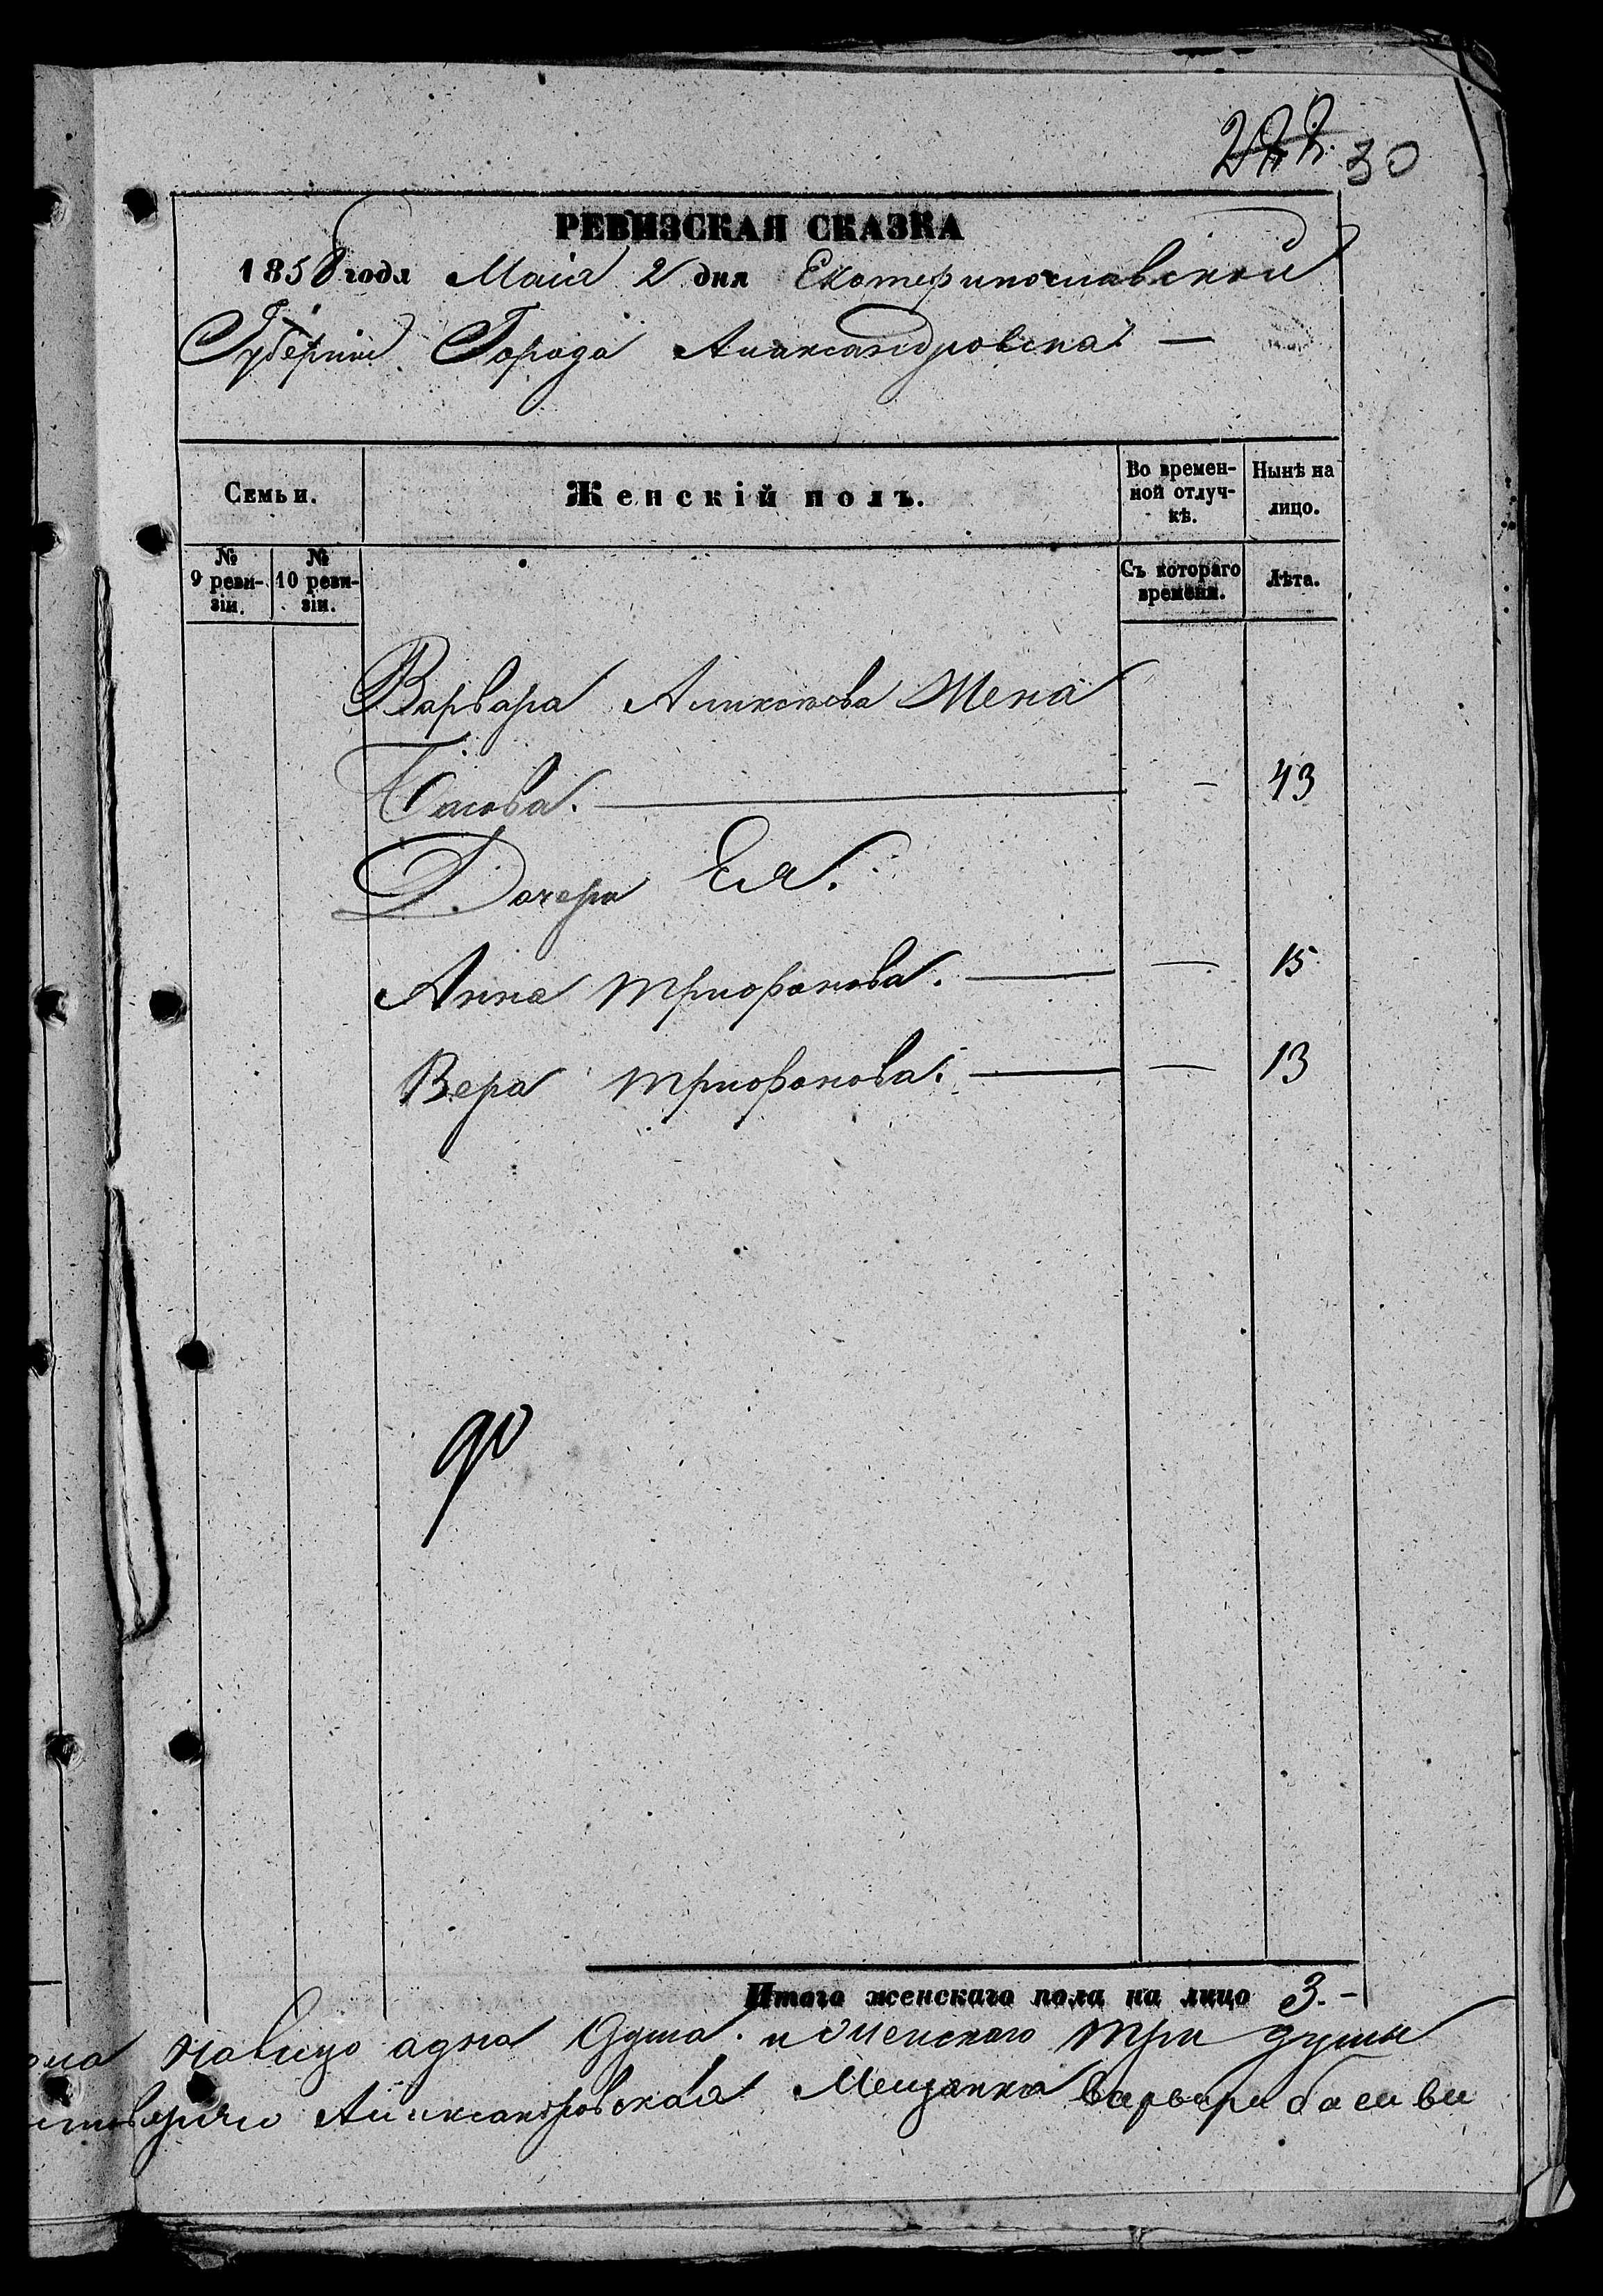 30
РЕВИЗСКАЯ СКАЗКА
1858 года Маия 2 дня Екатеринославской
Губернии Города Алаксандровска. —
Семьи.
Женскій полъ.
Во времен-
ной отлуч-
кѣ.
Нынѣ на
лицо.
№
9 реви-
зіи.
№
10 реви-
зіи.
Съ котораго
времени.
Лѣта.
Варвара Жена
Басова. — — 43
Дочери Ея.
Анна Триофонова. — — 15
Вера Триофонова. — — 13
90
Итого женскаго пола на лицо 3. -
налицо адна Душа. и женскаго три души
Мещанка варвара басава